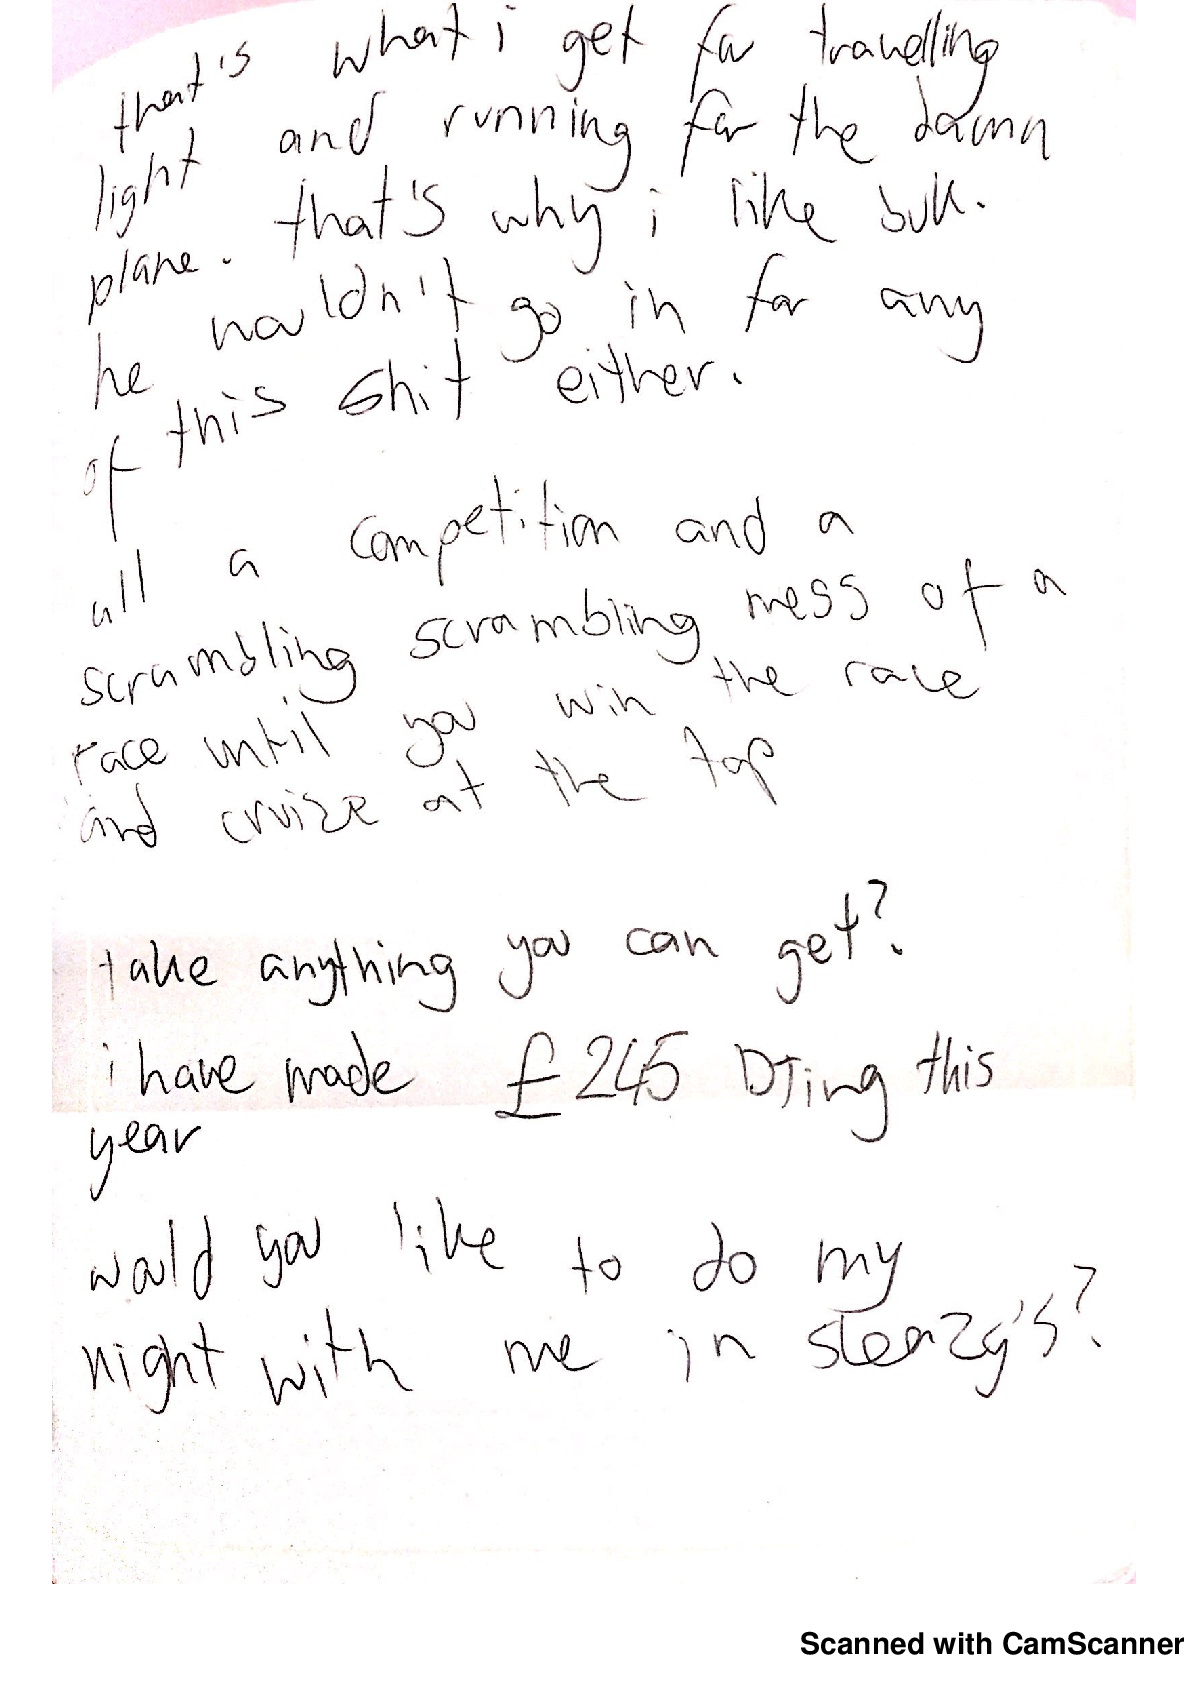 that's what i get for travelling
light and running for the damn
plane. that's why i like buk.
he wouldn't go in for any
of this shit either.
all a competition and a
scrambling scrambling mess of a
race until you win the race
and cruize at the top
take anything you can get?
i have made £245 DJing this
year
would you like to do my
night with me in sleazy's?
Scanned with CamScanner